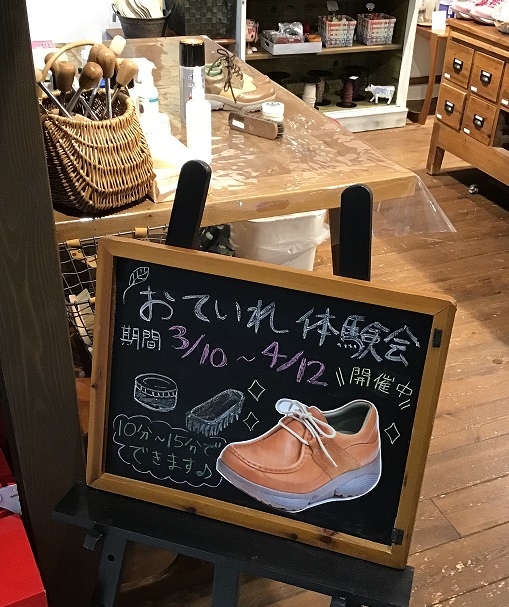 おていれ 体験会
期間 3/10～4/12
\\開催中//
10分～15分で
できます♪